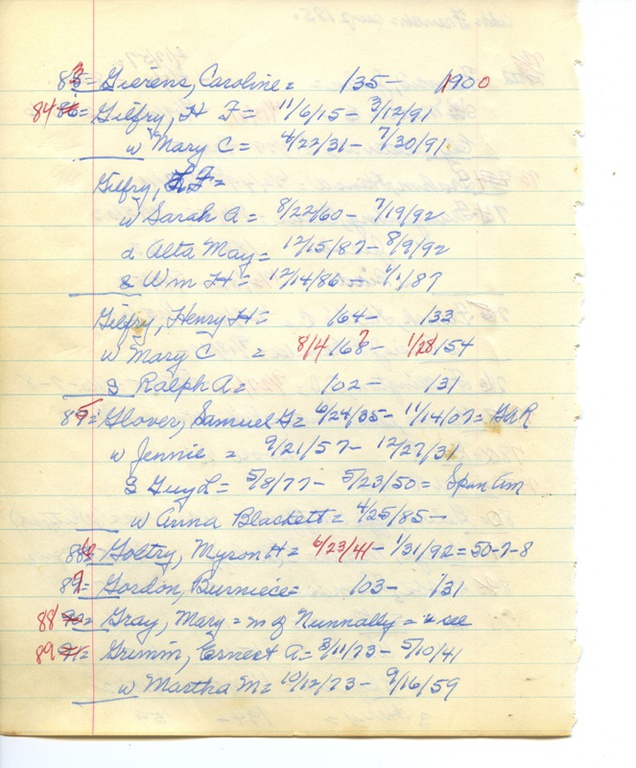 83= Gierens, Caroline = /35 - 1900
84 = Gilfry, H F = 11/6/15 - 3/12/91
w Mary C = 4/22/31 - 7/30/91
Gilfry, L F =
w Sarah A = 8/22/60 - 7/19/92
d Alta May = 12/15/87 - 8/9/92
s Wm H = 12/14/86 - 1/1/87
Gilfry, Henry H = /64 - /33
w Mary C = 8/4/67 - 1/28/54
s Ralph A = /02 - /31
85= Glover, Samuel G = 6/24/35 - 11/14/07 = GAR
w Jennie = 9/21/57 - 12/27/31
s Guy L = 5/8/77 - 5/23/50 = Span Am
w Anna Blackett = 4/25/85 -
86= Goltry, Myron H = 6/23/41 - 1/31/92 = 50-7-8
87= Gordon, Burniece = /03 - /31
88 = Gray, Mary = m of Nunnally = see
89 = Grimm, Ernest A = 3/11/73 - 5/10/41
w Martha M = 10/12/73 - 9/16/59